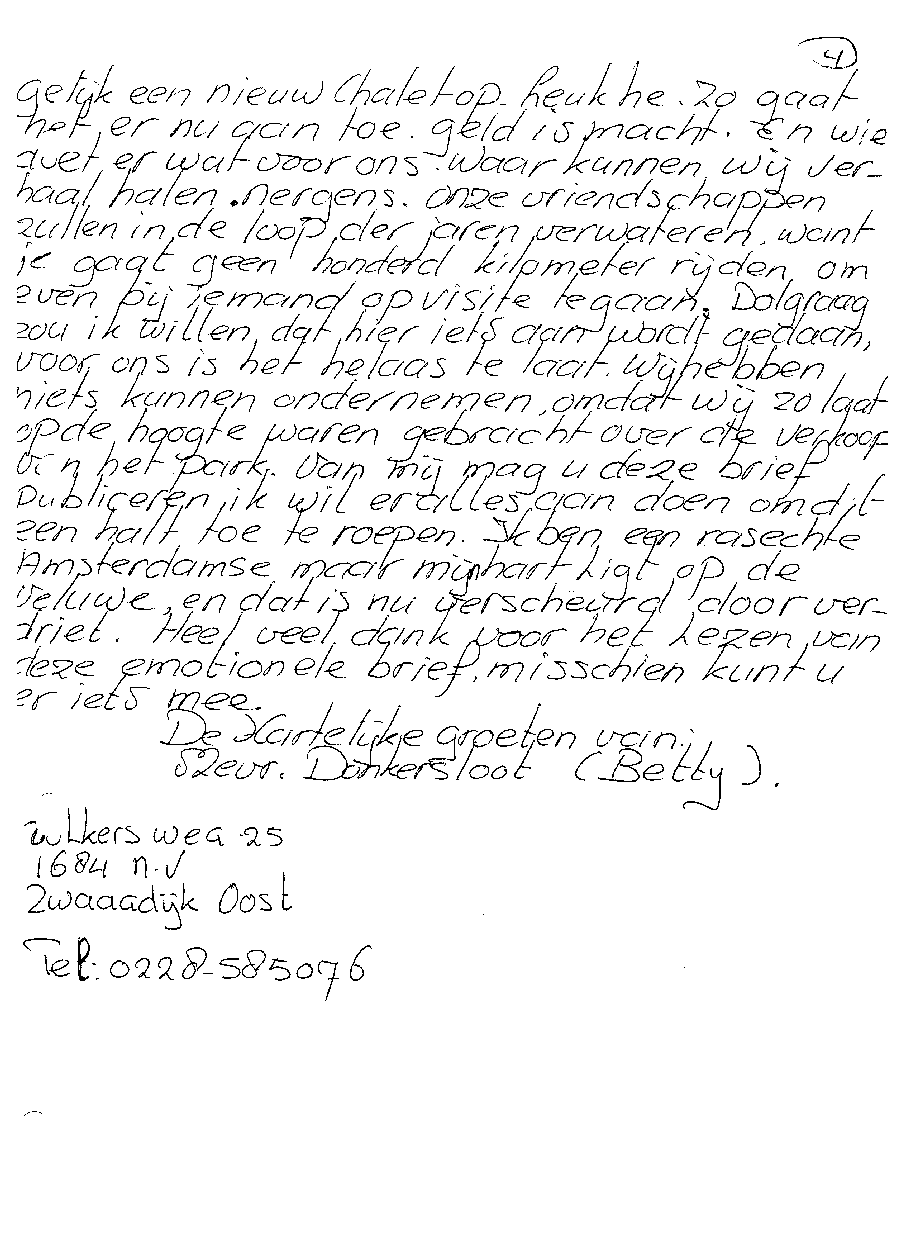 4
gelijk een nieuw Chalet op. Leuk he. Zo gaat
het er nu aan toe. geld is macht. En wie
doet er wat voor ons. Waar kunnen wij ver-
haal halen. nergens. Onze vriendschappen
zullen in de loop der jaren verwateren, want
je gaat geen honderd kilometer rijden, om
even bij iemand op visite te gaan. Dolgraag
zou ik willen dat hier iets aan wordt gedaan,
voor ons is het helaas te laat. Wij hebben
niets kunnen ondernemen, omdat wij zo laat
op de hoogte waren gebracht over de verkoop
van het park. Van mij mag u deze brief
Publiceren, ik wil er alles aan doen om dit
een halt toe te roepen. Ik ben een rasechte
Amsterdamse maar mijn hart Ligt op de
Veluwe, en dat is nu verscheurd door ver-
driet. Heel veel dank voor het Lezen van
deze emotionele brief, misschien kunt u
er iets mee.
De Hartelijke groeten van:
Mevr. Donkersloot (Betty).
25
1684 n.V
Zwaaadijk Oost
Tel: 0228-585076